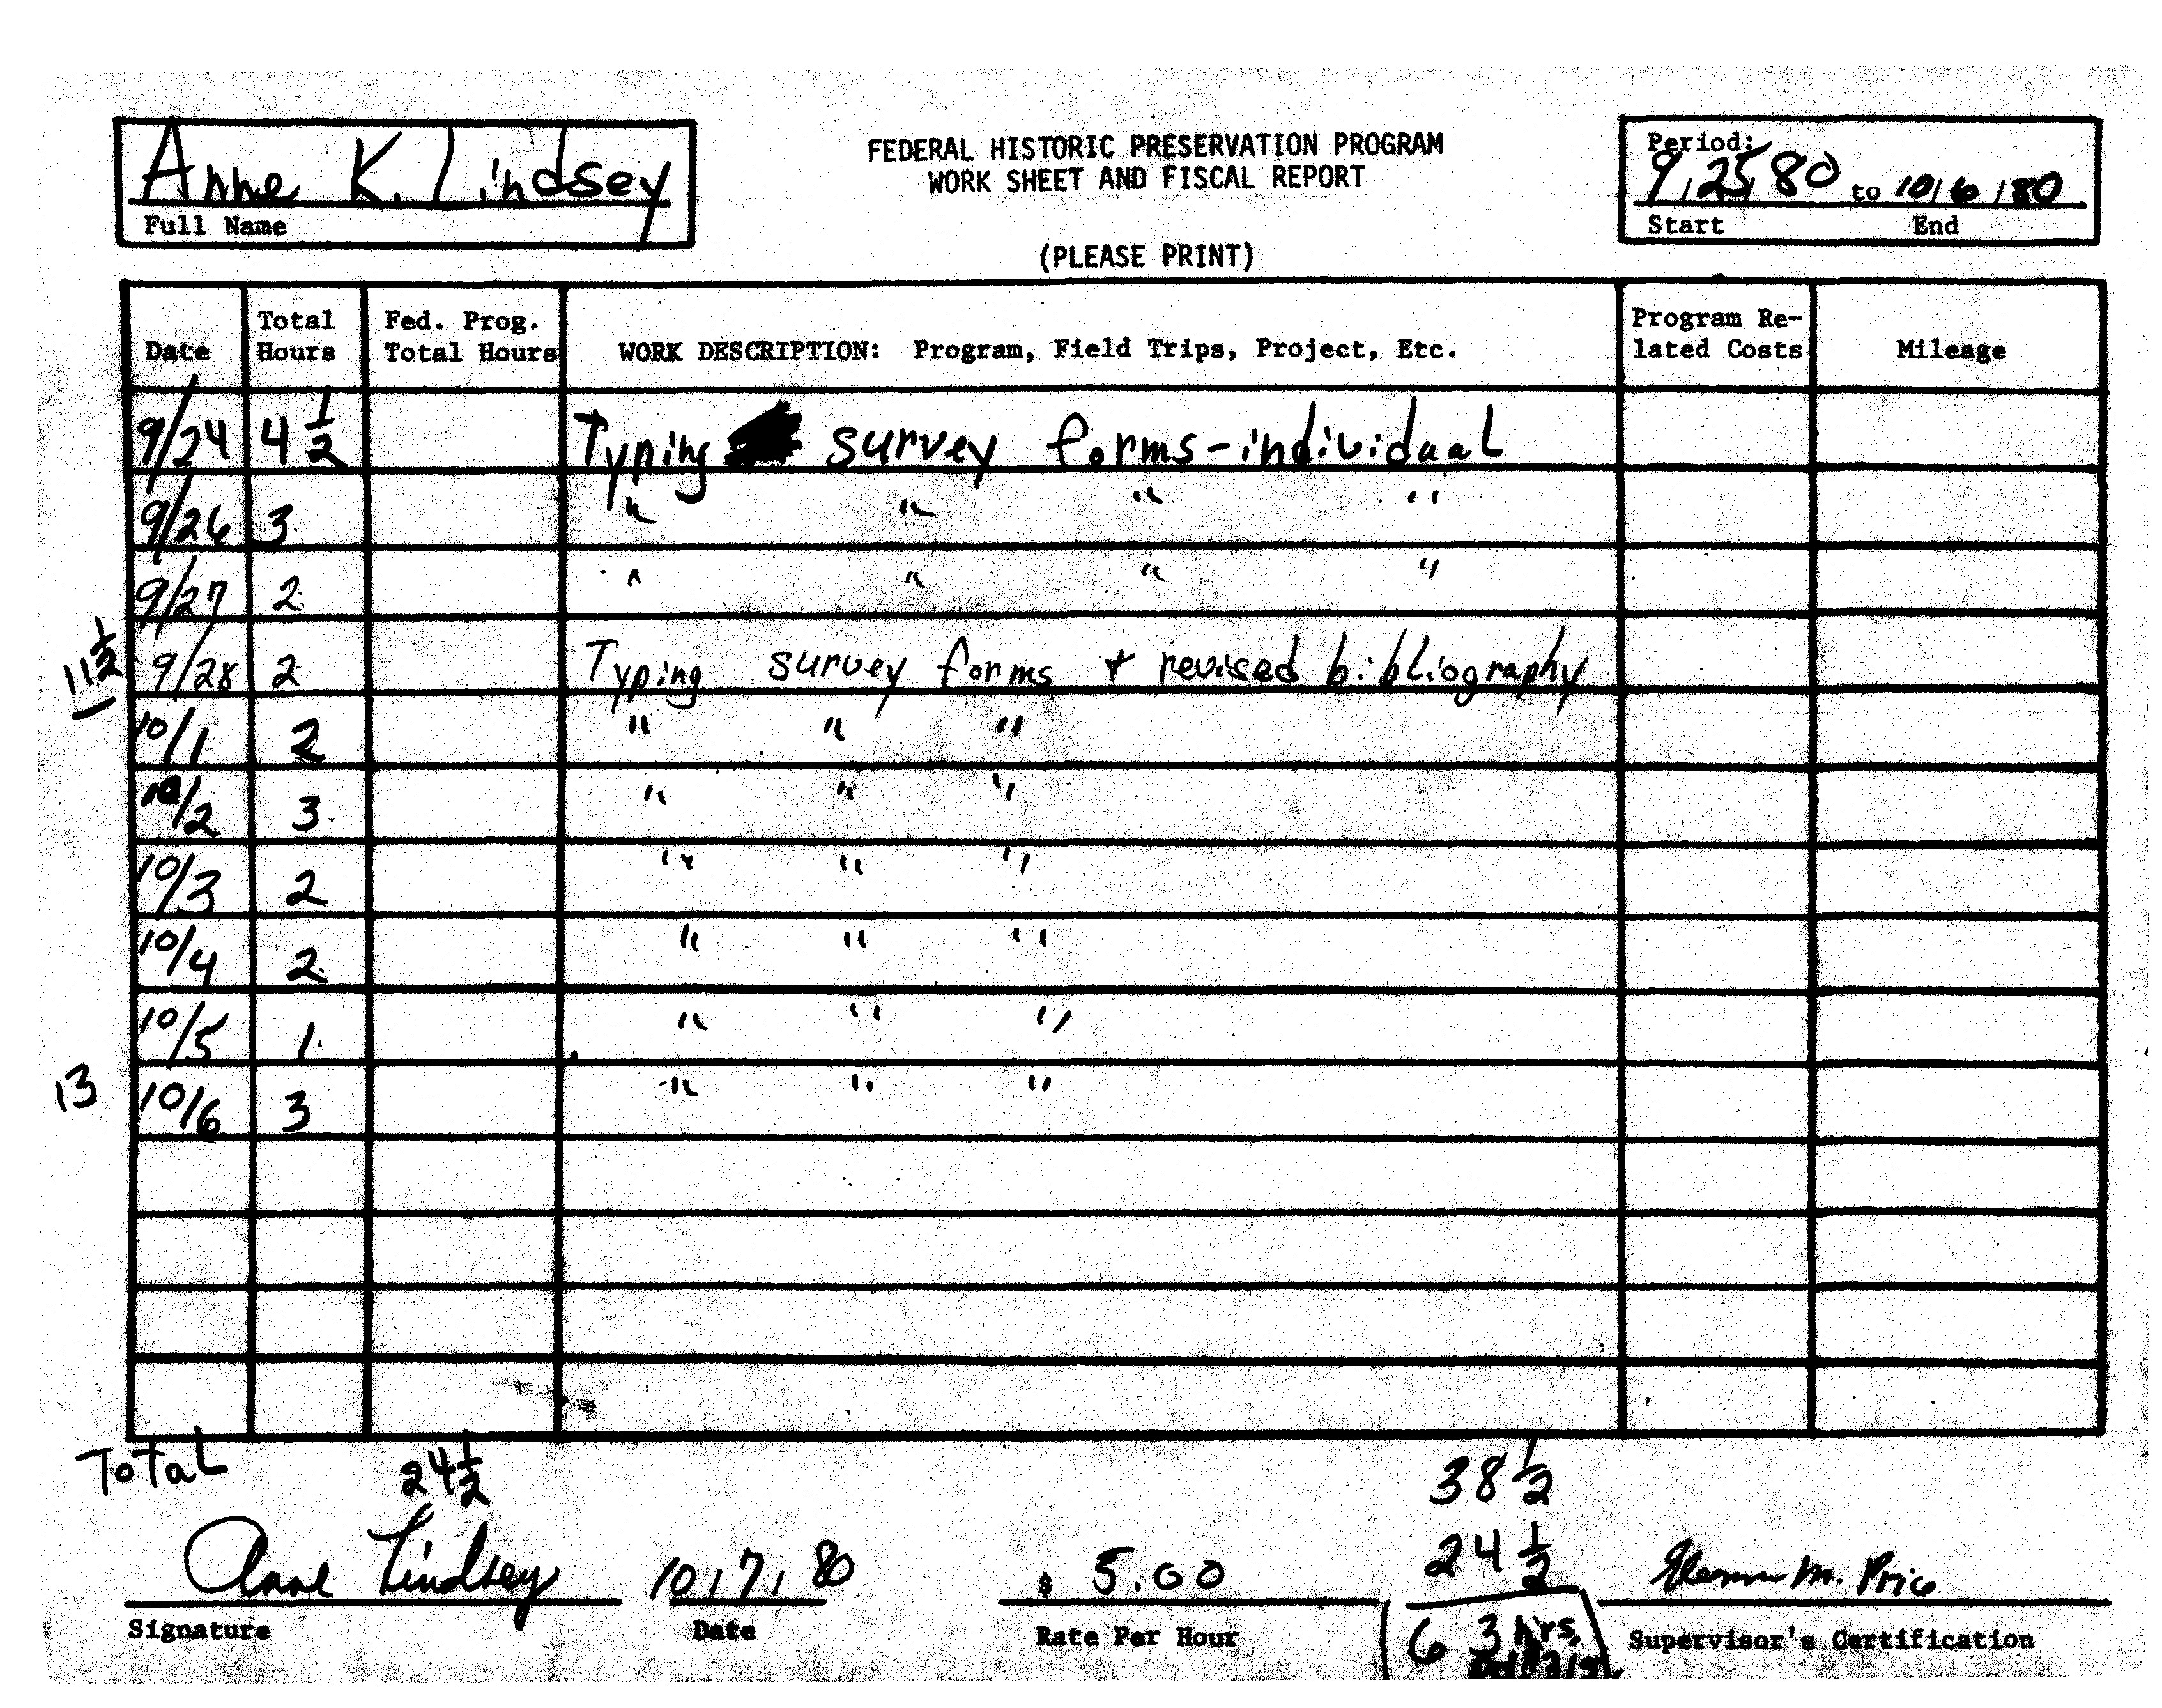 Anne K. Lindsey
Full Name
FEDERAL HISTORIC PRESERVATION PROGRAM
WORK SHEET AND FISCAL REPORT
(PLEASE PRINT)
Period:
9/25/80 to 10/6/80
Start End
Date Total Hours Fed. Prog. Total Hours WORK DESCRIPTION: Program, Field Trips, Project, Etc. Program Re- lated Costs Mileage
9/24 4 1/2 Typing survey forms-individual
9/26 3 " " " "
9/27 2 " " " "
11 1/2 9/28 2 Typing survey forms + revised bibliography
10/1 2 " " "
10/2 3 " " "
10/3 2 " " "
10/4 2 " " "
10/5 1 " " "
13 10/6 3 " " "
Total 24 1/2 38 1/2
24 1/2
Anne Lindsey 10/7/80 $ 5.00 M. Price
Signature Date Rate Per Hour 63 hrs. Supervisor's Certification